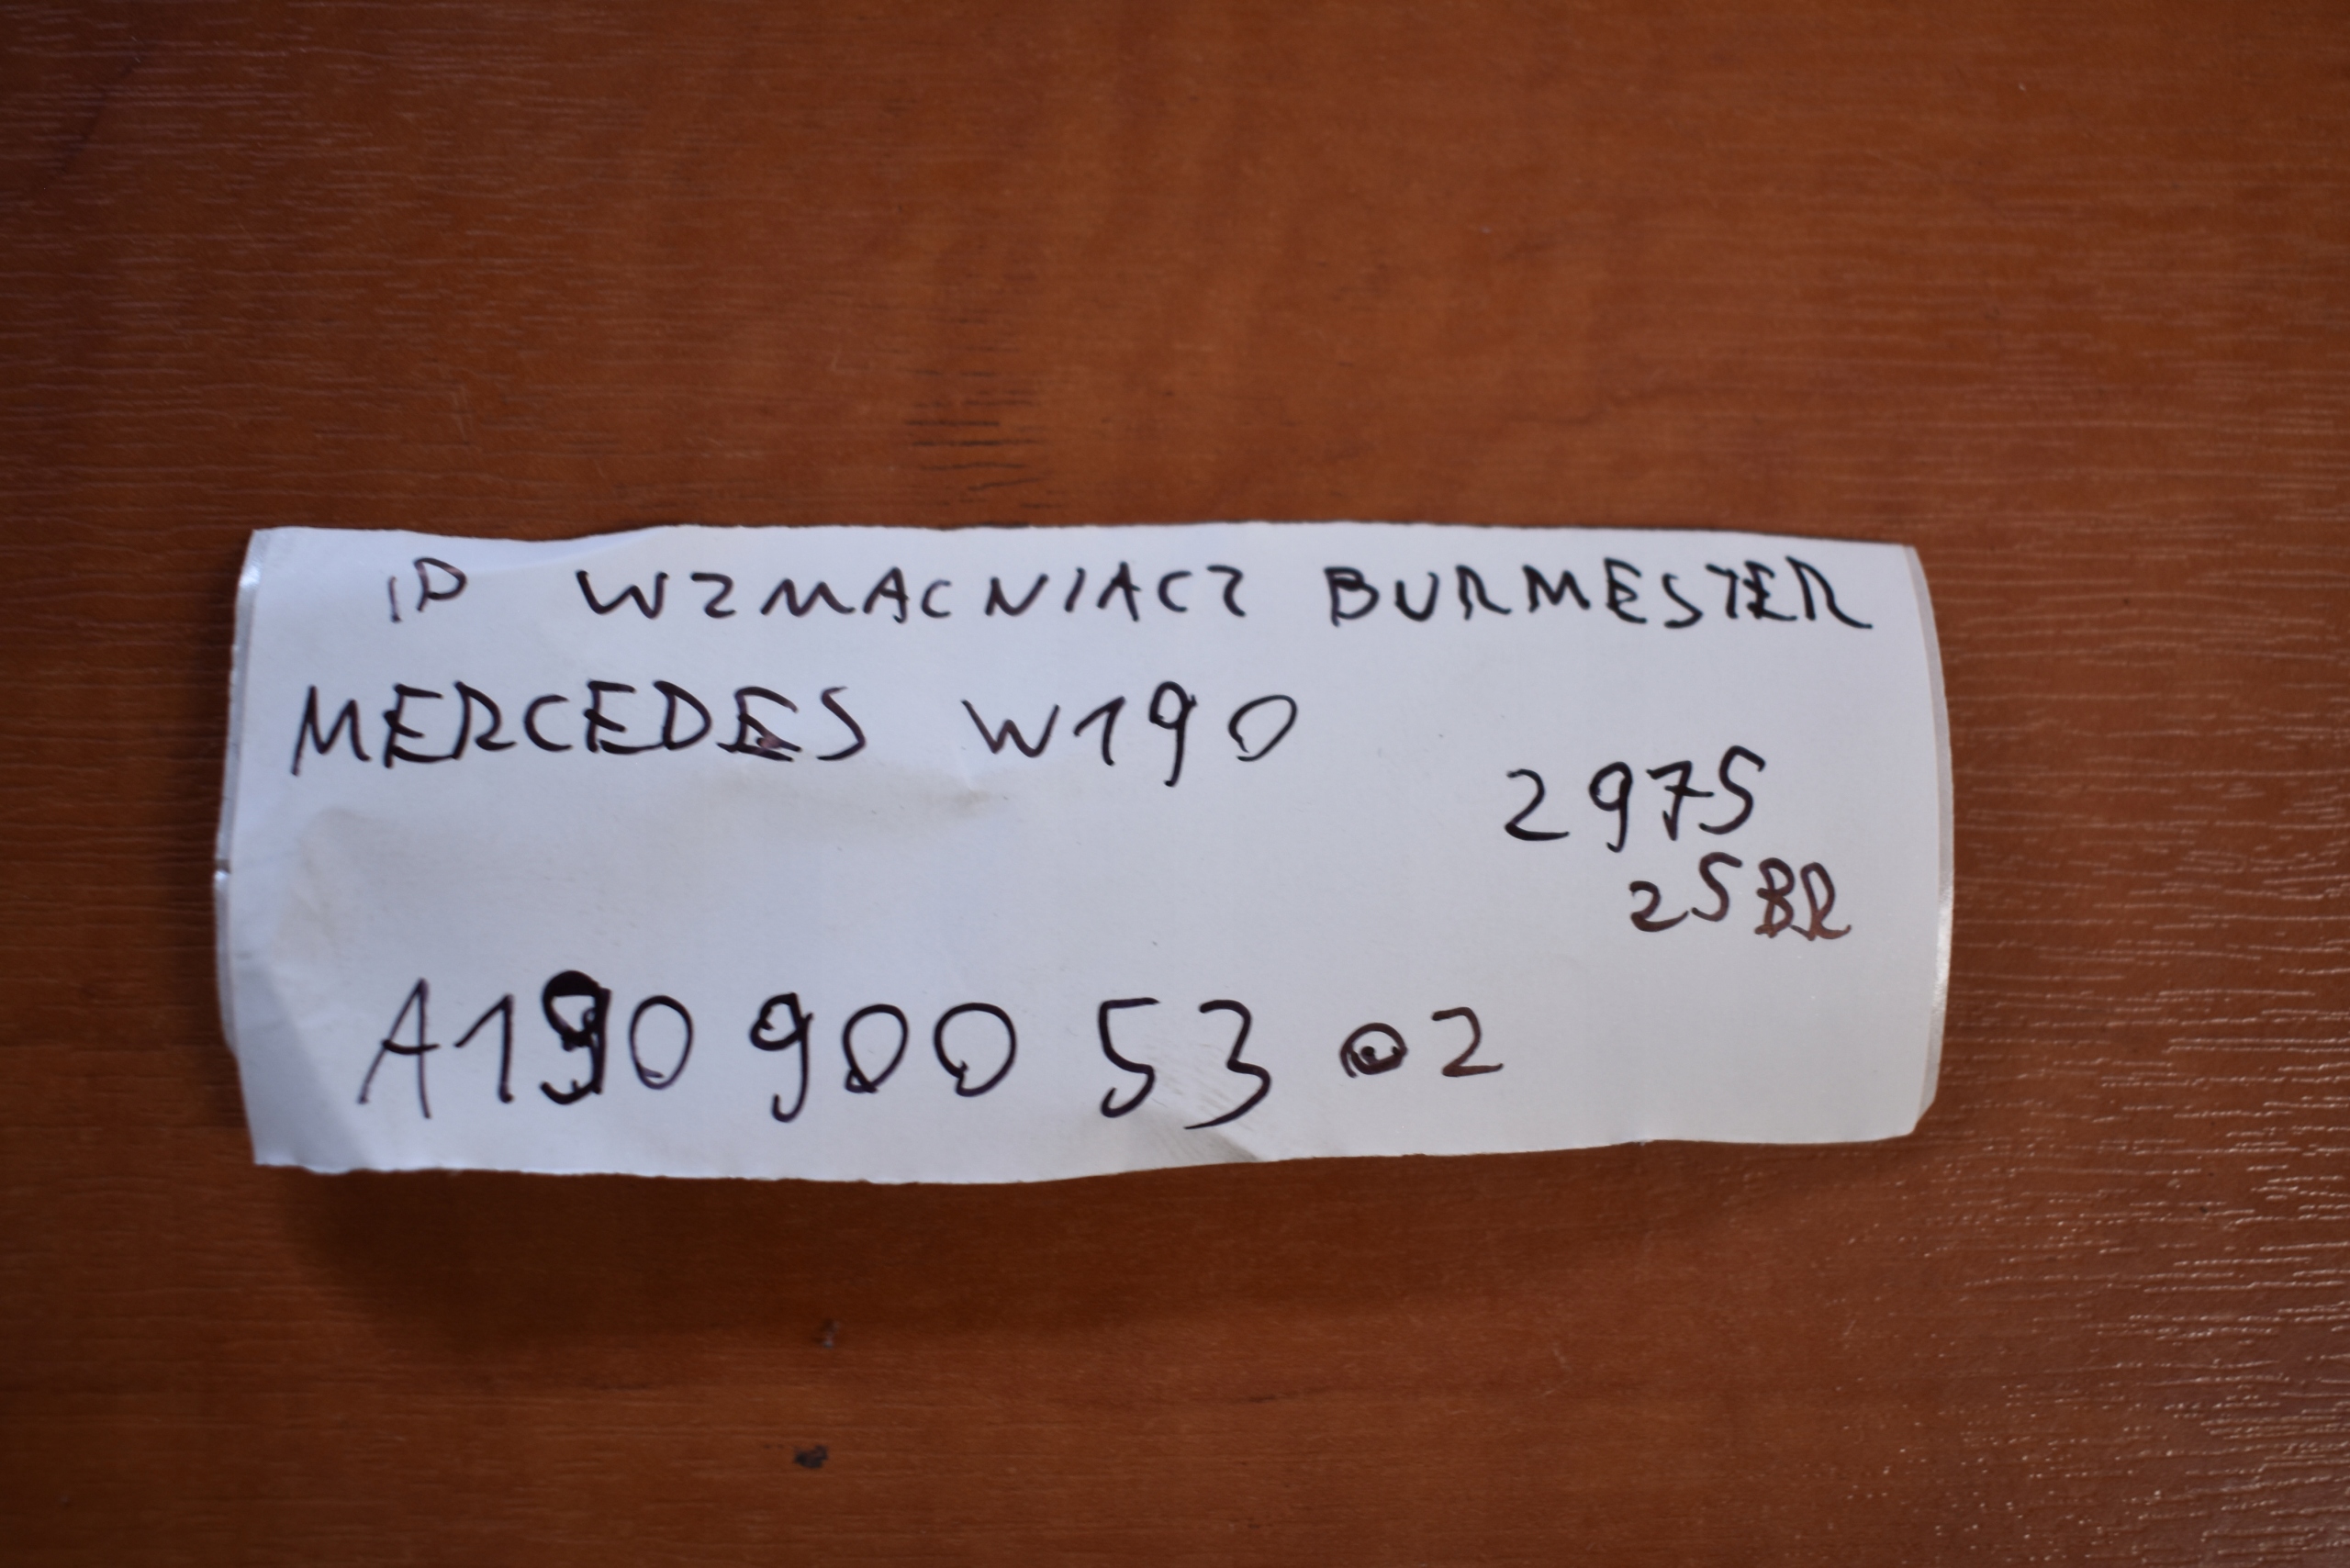 ID WZMACNIACZ BURMESTER
MERCEDES W190
2975
25BR
A190 900 53 02